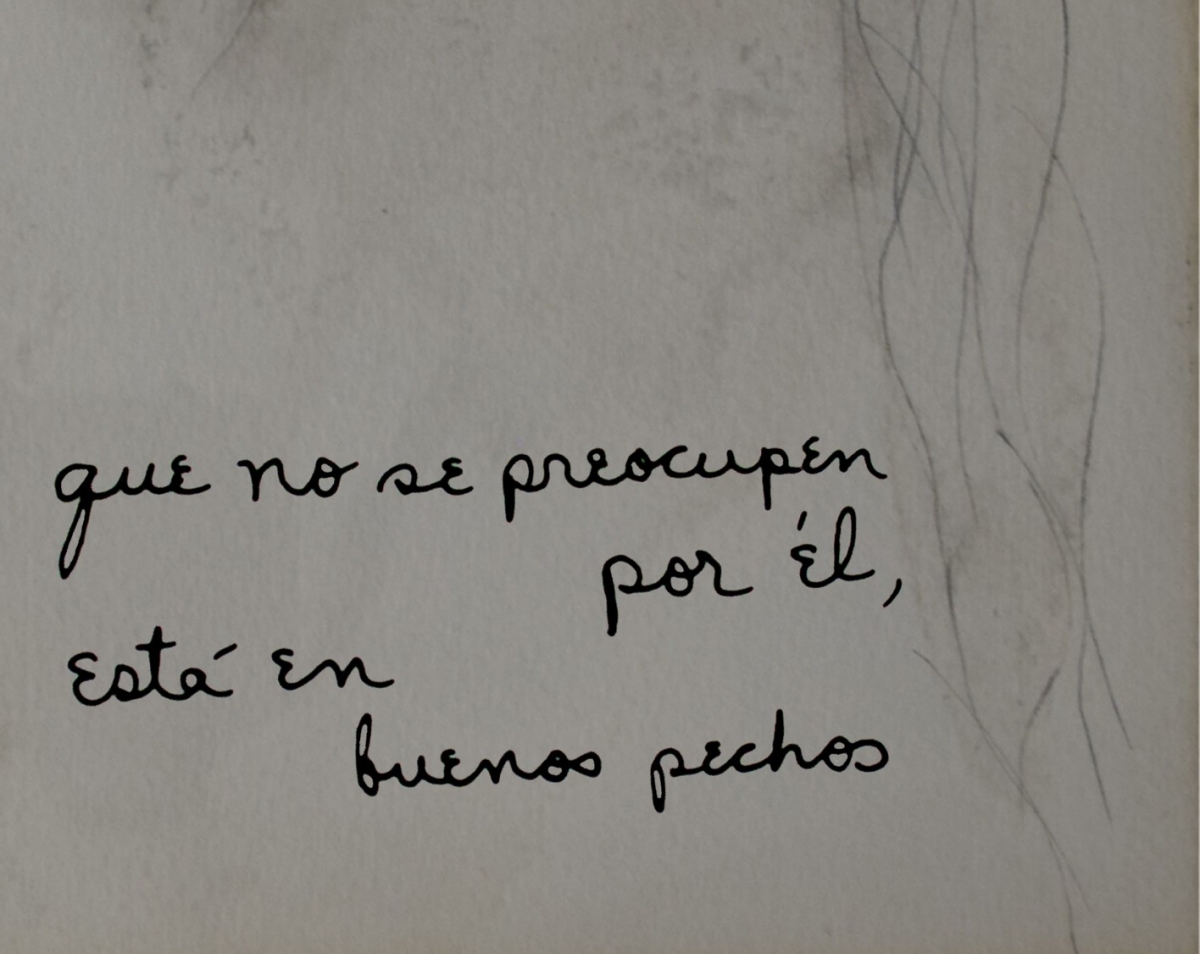 que no se preocupen
por él,
está en
buenos pechos